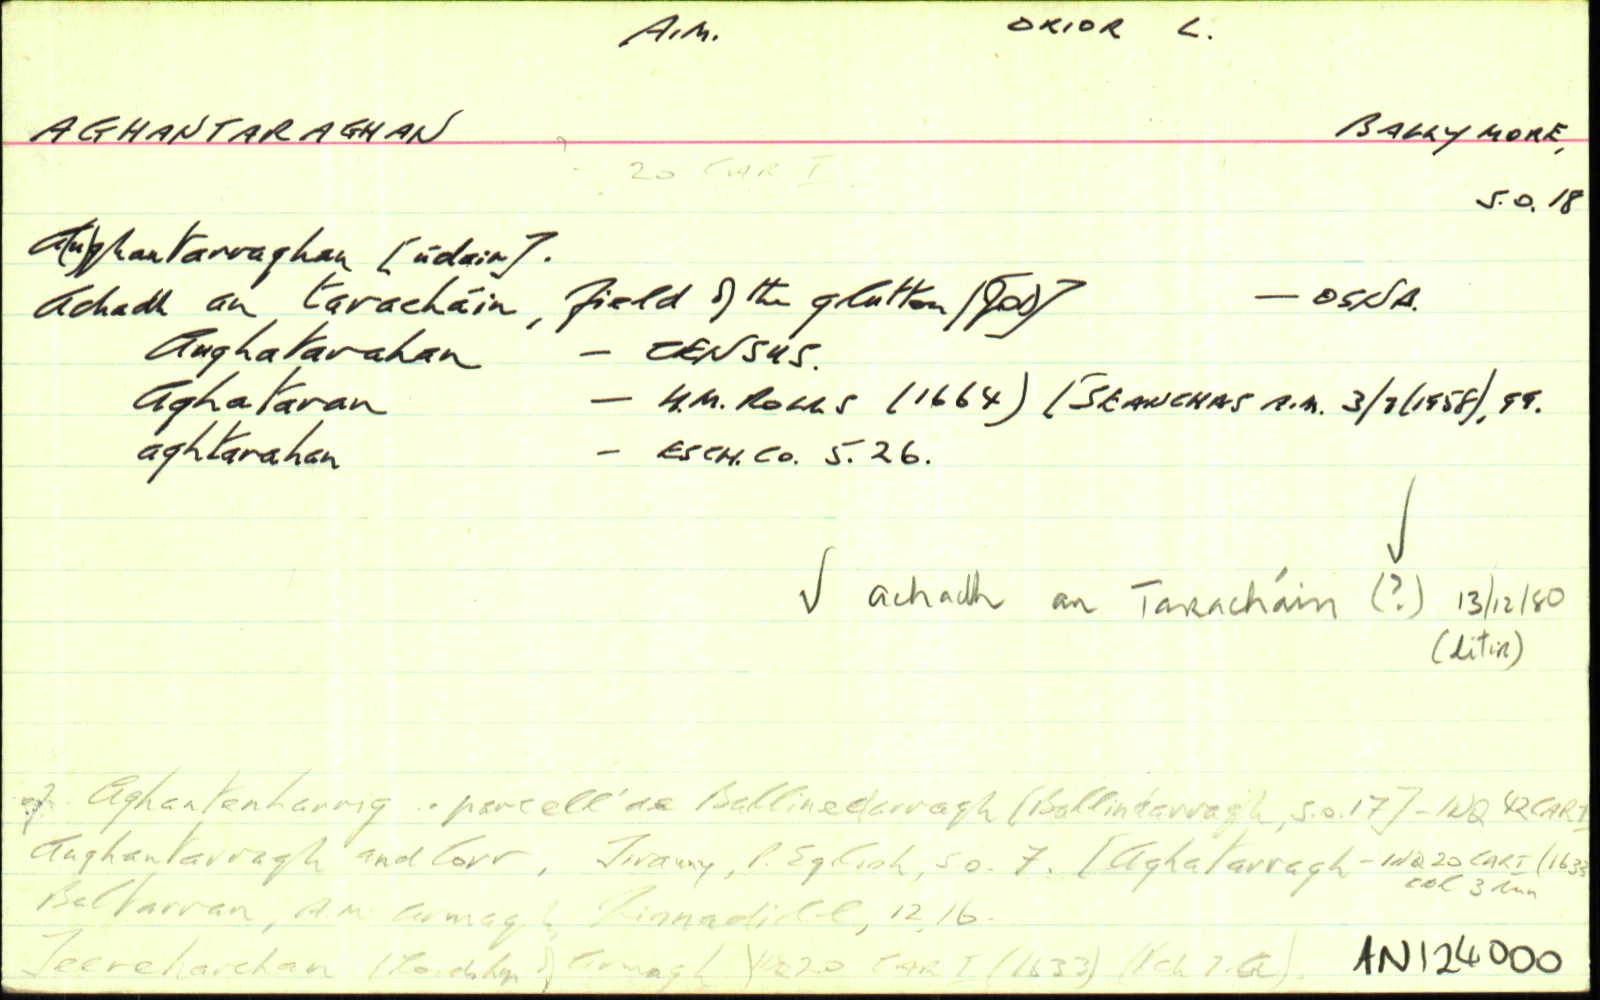 A.M. ORIOR L.
AGHANTARAGHAN BALLYMORE,
20 CAR I
S.O. 18
A(u)ghantarraghan [údain].
Achadh an taracháin, field of the glutton (Tod)] — OSNB.
Aughatarahan — CENSUS.
Aghataran — H.M. ROLLS (1664) [SEANCHAS A.M. 3/1 (1958), 99.
aghtarahan — ESCH. CO. 5. 26.
√ achadh an Taracháin (?) 13/12/80
(litir)
cf Aghantenharrig . parcell' de Ballinedarragh [Ballindarragh, S.O. 17] - INQ 42 CAR I
Aughantarragh and Corr, Tirauny, P. Eglish, S.O. 7. [Aghatarragh - INQ 20 CAR I (1633
Baltarran, A.M. Armagh, 12, 16.
Teereharchan (Lordship of Armagh) INQ 20 CAR I (1633)
AN124000